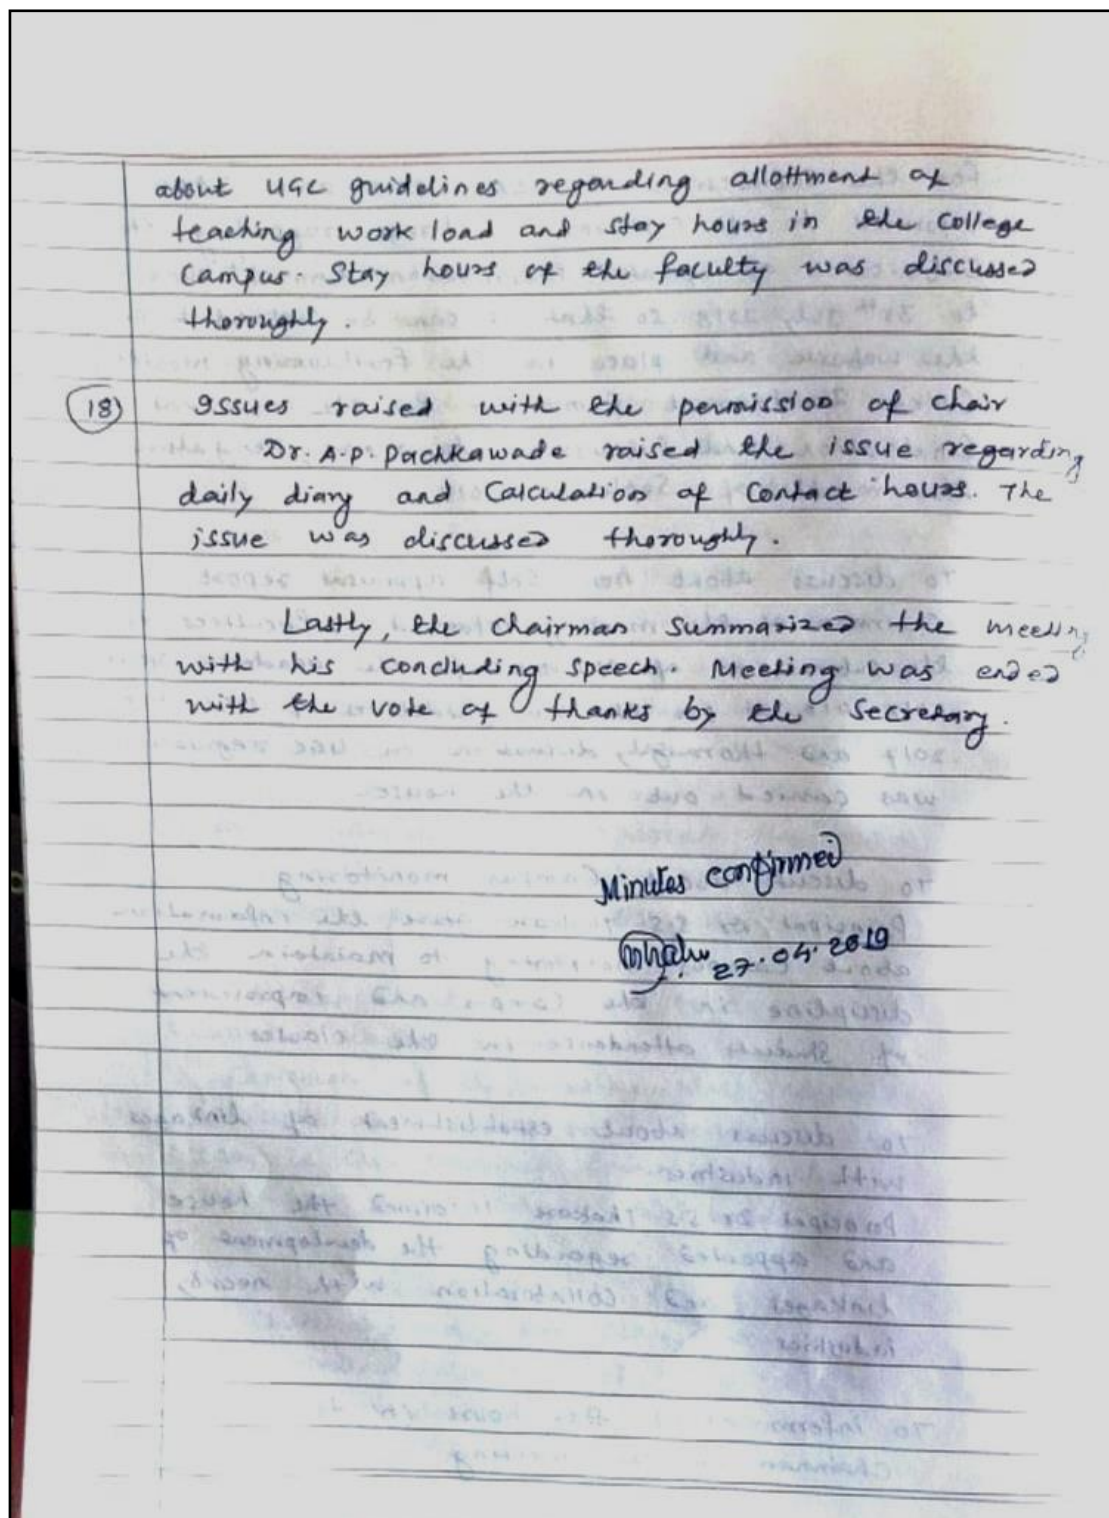 about UGC guidelines regarding allottment of
teaching work load and stay hours in the College
Campus. Stay hours of the faculty was discussed
thoroughly.
18) Issues raised with the permission of chair
Dr. A.P. Pachkawade raised the issue regarding
daily diary and Calculation of Contact hours. The
issue was discussed thoroughly.
Lastly, the chairman summarized the meeting
with his concluding speech. Meeting was ended
with the vote of thanks by the Secretary.
Minutes confirmed
27.04.2019